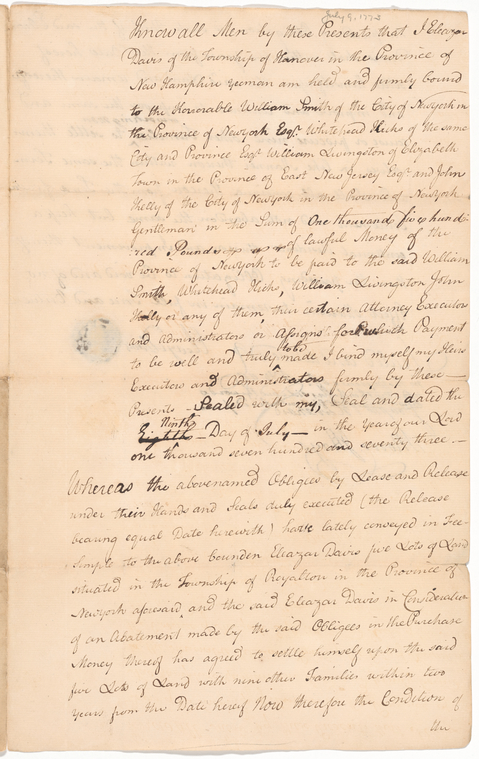 July 9, 1773
Know all Men by these Presents that I Eleazar
Davis of the Township of Hanover in the Province of
New Hampshire yeoman am held and firmly bound
to the Honorable William Smith of the City of Newyork in
the Province of Newyork Esqr. Whitehead Hicks of the same
City and Province Esqr William Livingston of Elizabeth
Town in the Province of East New Jersey Esqr and John
Kelly of the City of Newyork in the Province of Newyork
Gentleman in the Sum of One thousand five hund
red Pounds of lawful Money of the
Province of Newyork to be paid to the said William
Smith, Whitehead Hicks, William Livingston John
Kelly or any of them, their certain Attorney Executors
and Administrators or Assigns for which Payment
to be well and truly to be made I bind myself my Heirs
Executors and Administrators firmly by these
Presents Sealed with my Seal and dated the
Eighth Ninth Day of July in the Year of our Lord
one thousand seven hundred and seventy three.
Whereas the abovenamed Obligees by Lease and Release
under their Hands and Seals duly executed (the Release
bearing equal Date herewith) have lately conveyed in Fee
Simple to the above bounden Eleazar Davis five Lots of Land
situated in the Township of Royalton in the Province of
Newyork aforesaid and the said Eleazar Davis in Consideration
of an Abatement made by the said Obligees in the Purchase
Money thereof has agreed to settle himself upon the said
five Lots of Land with nine other Families within two
Years from the Date hereof Now therefore the Condition of
the